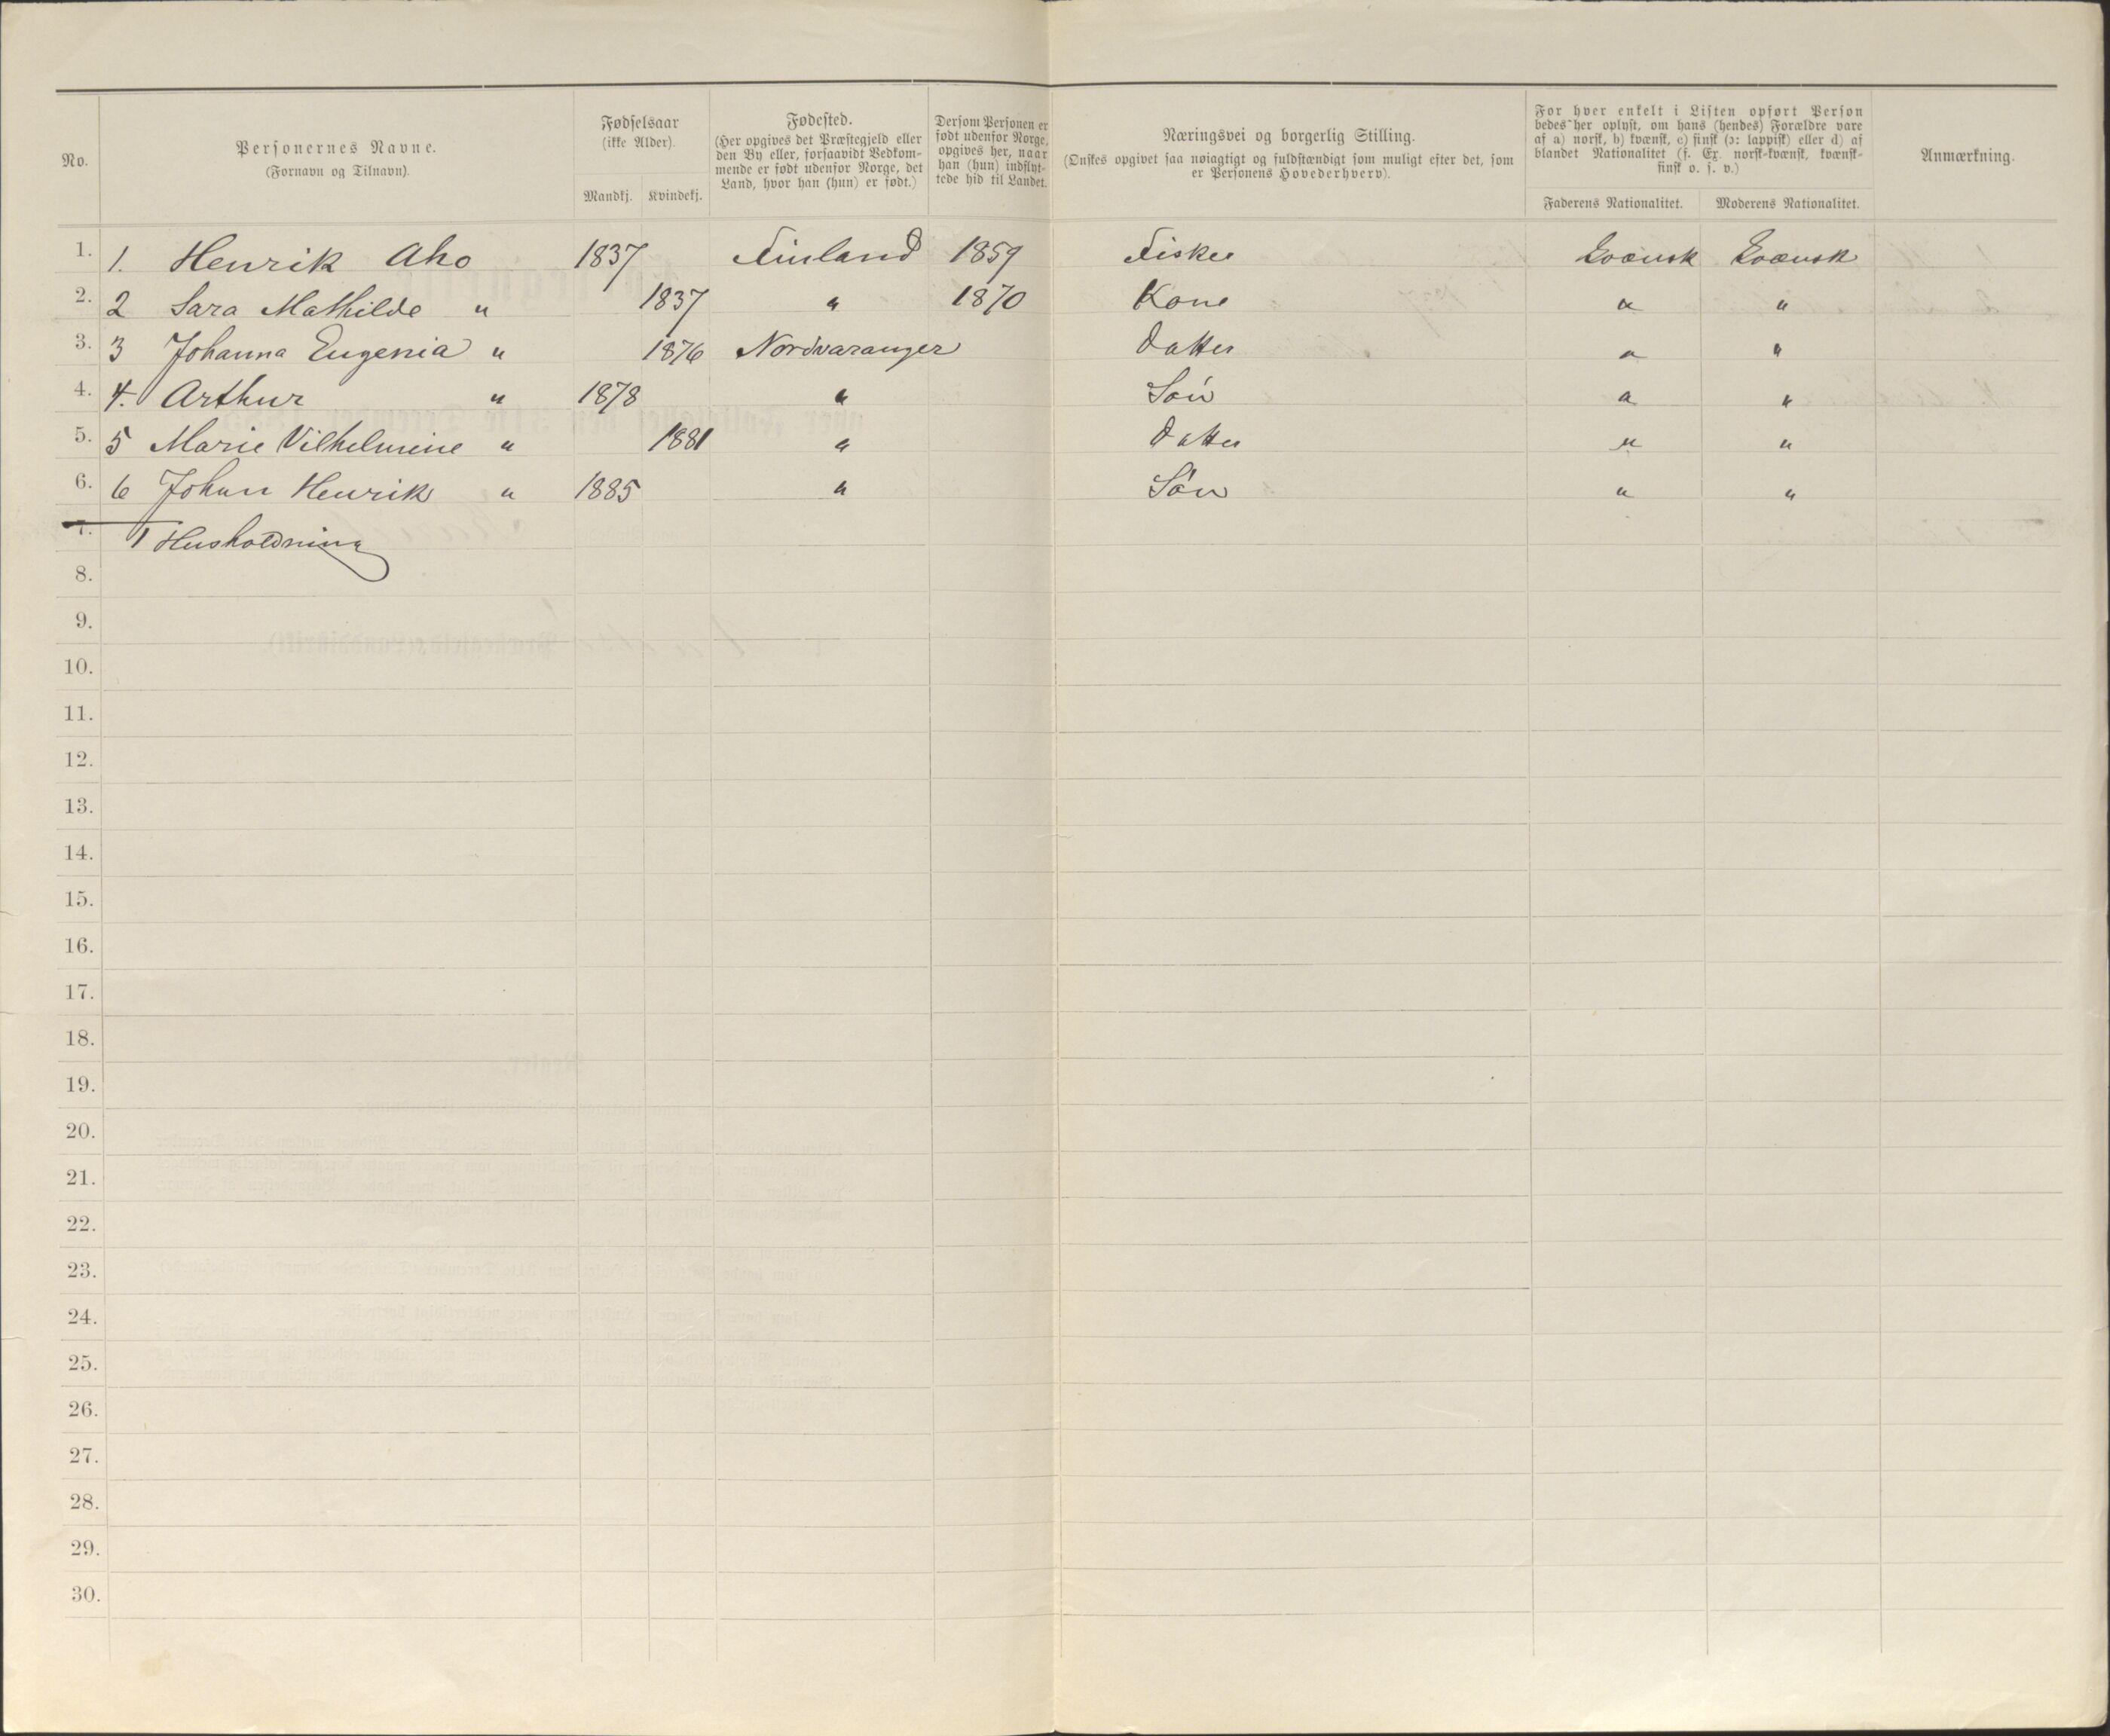 No.
Personernes Navne.
(Fornavn og Tilnavn).
Fødselsaar
(ikke Alder).
Mandkj. Kvindekj.
Fødested.
(Her opgives det Præstegjeld eller
den By eller, forsaavidt Vedkom-
mende er født udenfor Norge, det
Land, hvor han (hun) er født.)
Dersom Personen er
født udenfor Norge,
opgives her, naar
han (hun) indflyt-
tede hid til Landet.
Næringsvei og borgerlig Stilling.
(Ønskes opgivet saa nøiagtigt og fuldstændigt som muligt efter det, som
er Personens Hovederhverv).
For hver enkelt i Listen opført Person
bedes her oplyst, om hans (hendes) Forældre vare
af a) norsk, b) kvænsk, c) finsk (ɔ: lappisk) eller d) af
blandet Nationalitet (f. Ex. norsk-kvænsk, kvænsk-
finsk o. s. v.)
Faderens Nationalitet. Moderens Nationalitet.
Anmærkning.
1. 1. Henrik Aho 1837 Finland 1859 Fisker Kvænsk Kvænsk
2. 2 Sara Mathilde " 1837 " 1870 Kone " "
3. 3 Johanna Eugenia " 1876 Nordvaranger Datter " "
4. 4. Arthur " 1878 " Søn " "
5. 5 Marie Vilhelmine " 1881 " Datter " "
6. 6 Johan Henrik " 1885 " Søn " "
7. 1 Husholdning
8.
9.
10.
11.
12.
13.
14.
15.
16.
17.
18.
19.
20.
21.
22.
23.
24.
25.
26.
27.
28.
29.
30.